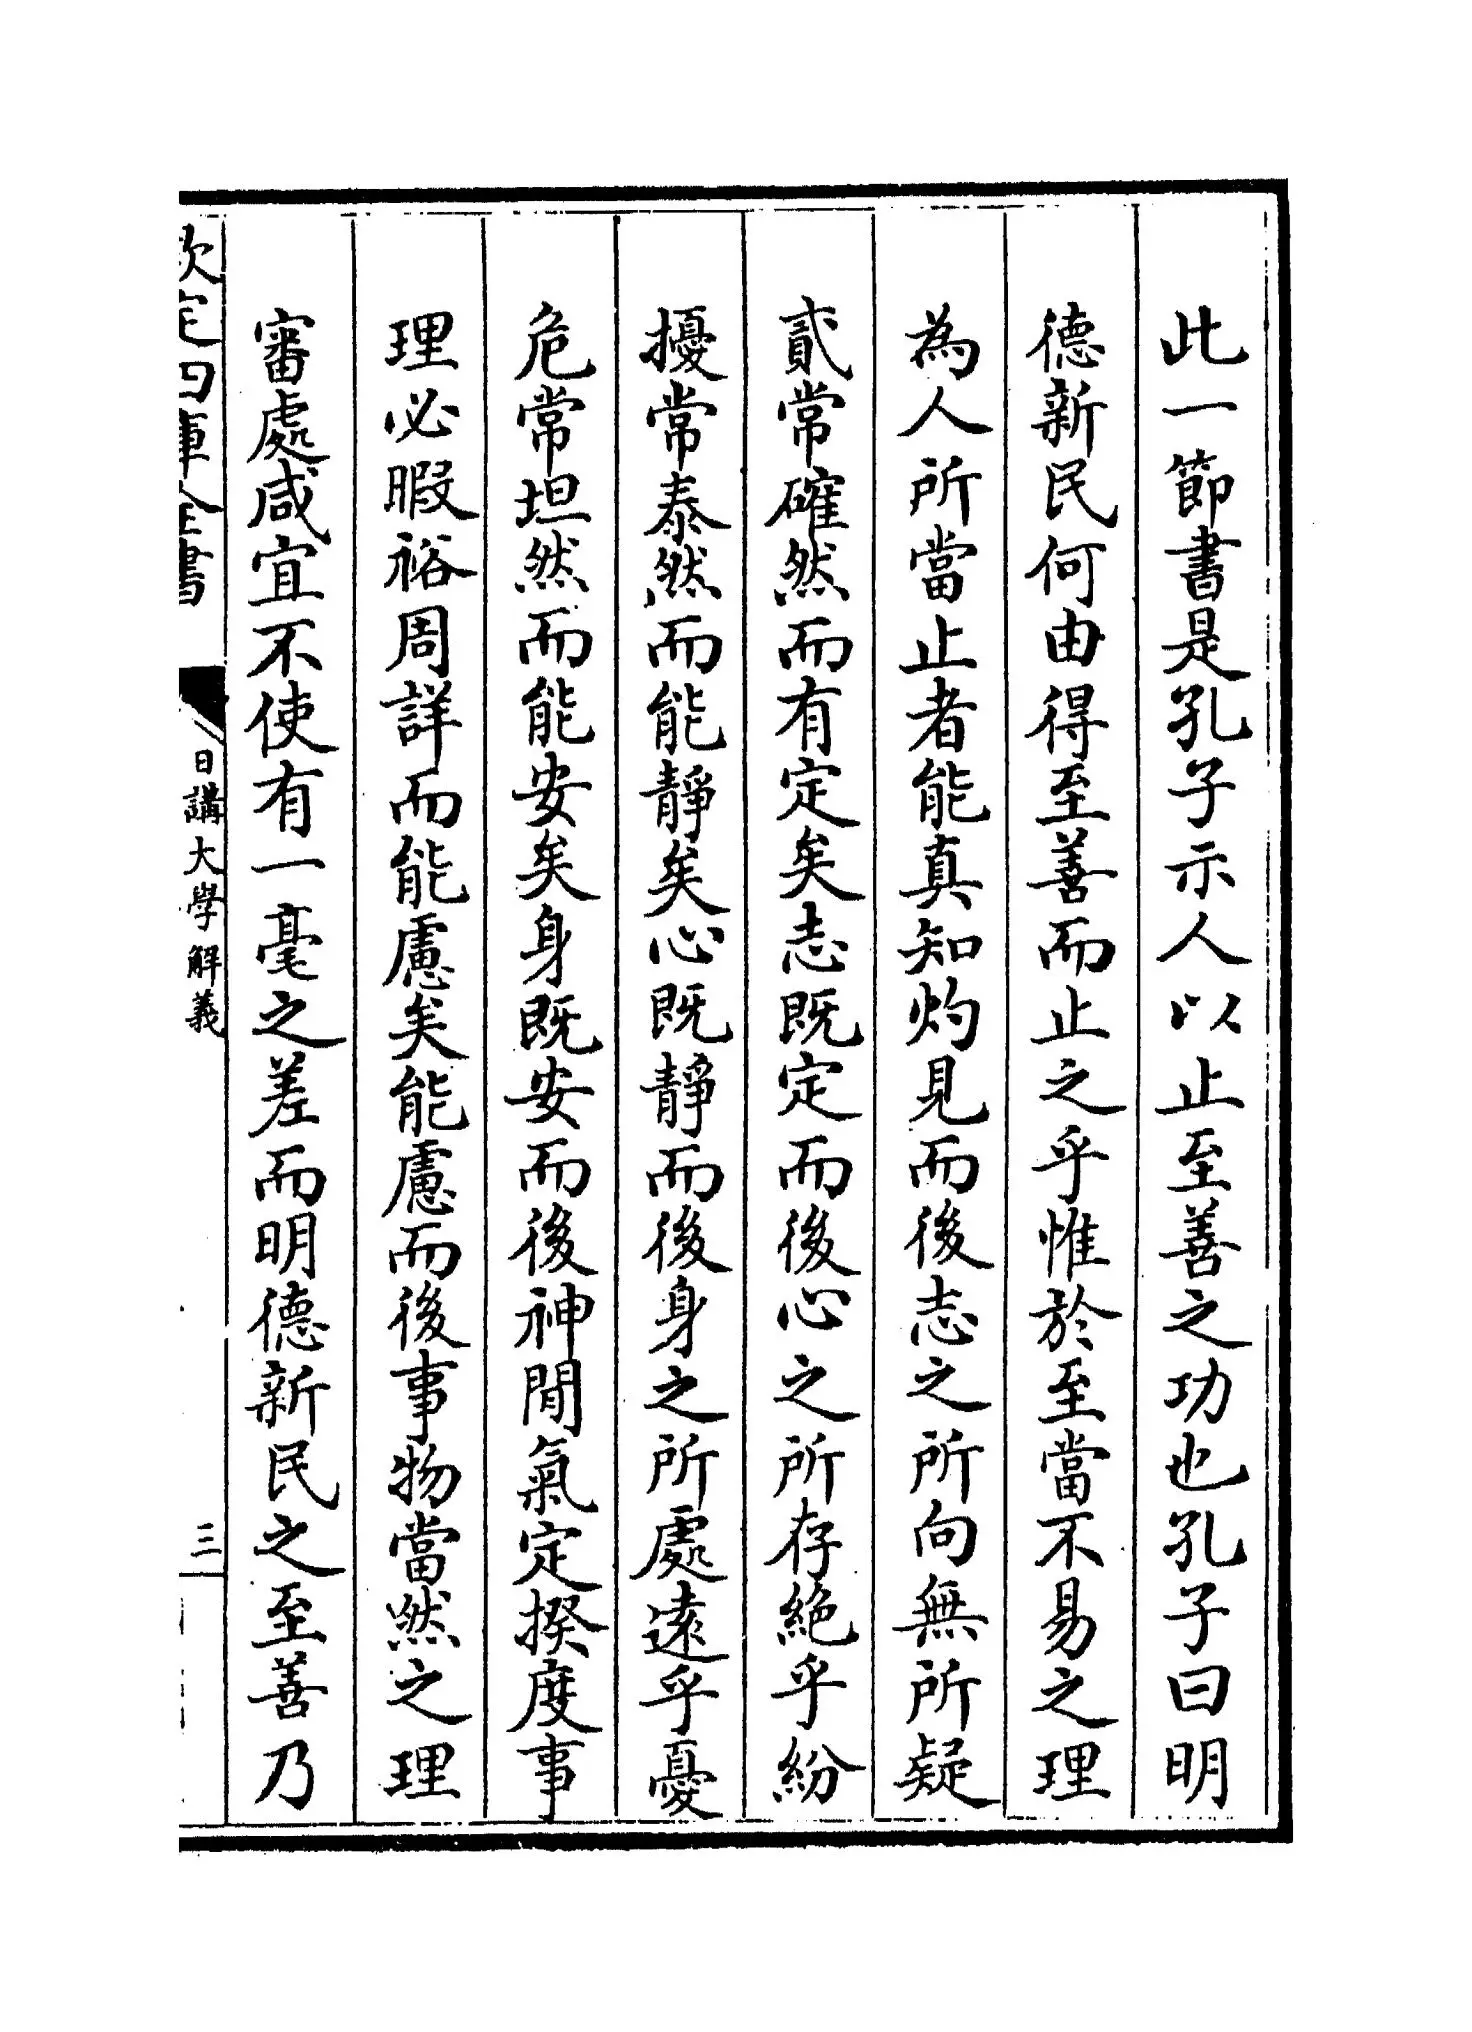 此一節書是孔子示人以止至善之功也孔子曰明
德新民何由得至善而止之乎惟於至當不易之理
為人所當止者能真知灼見而後志之所向無所疑
貳常確然而有定矣志既定而後心之所存絕乎紛
擾常泰然而能靜矣心既靜而後身之所處遠乎憂
危常坦然而能安矣身既安而後神閒氣定揆度事
理必暇裕周詳而能慮矣能慮而後事物當然之理
審處咸宜不使有一毫之差而明德新民之至善乃
欽定四庫全書
日講大學解義
三